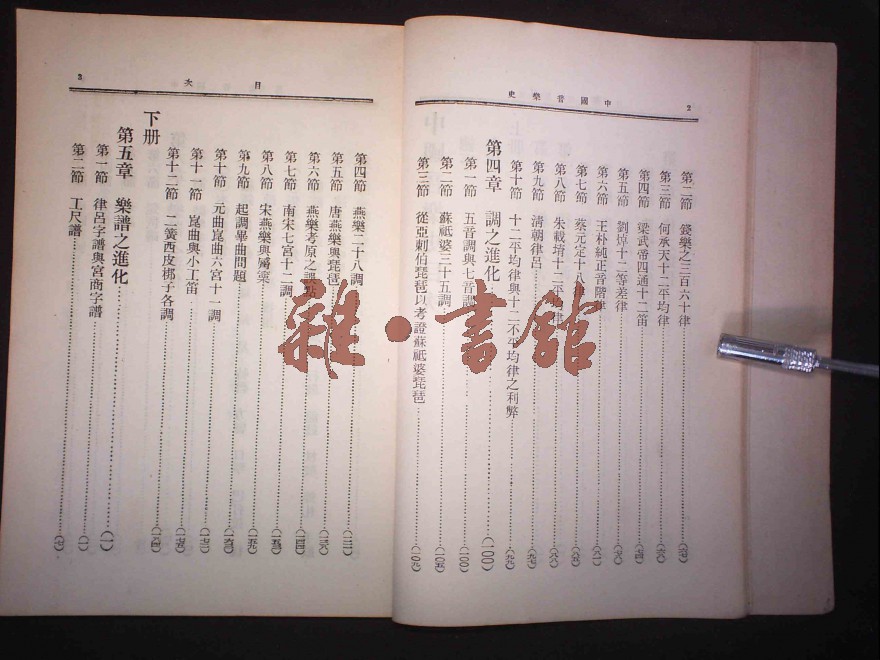 中國音樂史
2
第二節 錢樂之三百六十律
第三節 何承天十二平均律
第四節 梁武帝四通十二笛
第五節 劉焯十二等差律
第六節 王朴純正音階律
第七節 蔡元定十八律
第八節 朱載堉十二平均律
第九節 清朝律呂
第十節 十二平均律與十二不平均律之利弊
第四章 調之進化……(一〇〇)
第一節 五音調與七音調……(一〇〇)
第二節 蘇祇婆三十五調……(一〇五)
第三節 從亞剌伯琵琶以考證蘇祇婆琵琶……(一〇九)
目次
3
第四節 燕樂二十八調
第五節 唐燕樂與琵琶
第六節 燕樂考原之誤點
第七節 南宋七宮十二調
第八節 宋燕樂與觱篥
第九節 起調畢曲問題
第十節 元曲崑曲六宮十一調
第十一節 崑曲與小工笛
第十二節 二簧西皮梆子各調
下册
第五章 樂譜之進化……(一)
第一節 律呂字譜與宮商字譜……(一)
第二節 工尺譜……(七)
雜·書館